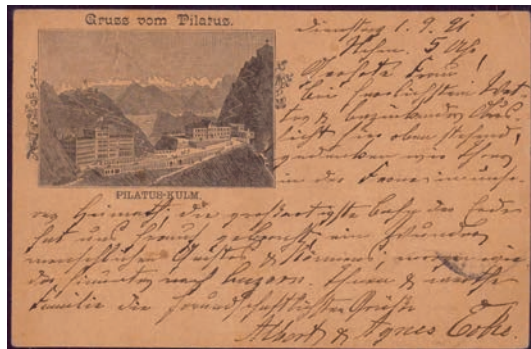 Gruss vom Pilatus.
PILATUS-KULM.
Dienstag 1. 9. 91
5 Uhr
Geehrte Frau!
Bei herrlichstem Wet-
ter & bezaubernder Aus-
sicht hier oben stehend,
gedenken wir Ihrer
in der Ferne
Heimath, die großartigste Bahn der Erde
hat uns herauf gebracht, ein Wunder
menschlichen Geistes & Könnens,
nach Luzern. Ihnen & werthe
Familie die freundschaftlichsten Grüße
Albert & Agnes